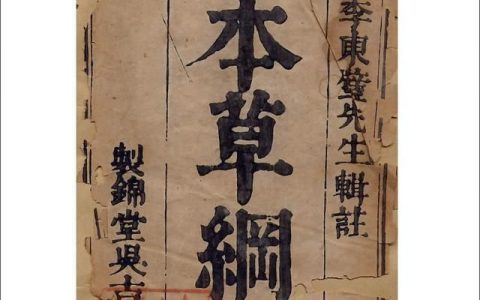 李東璧先生輯註
本草綱
製錦堂吳